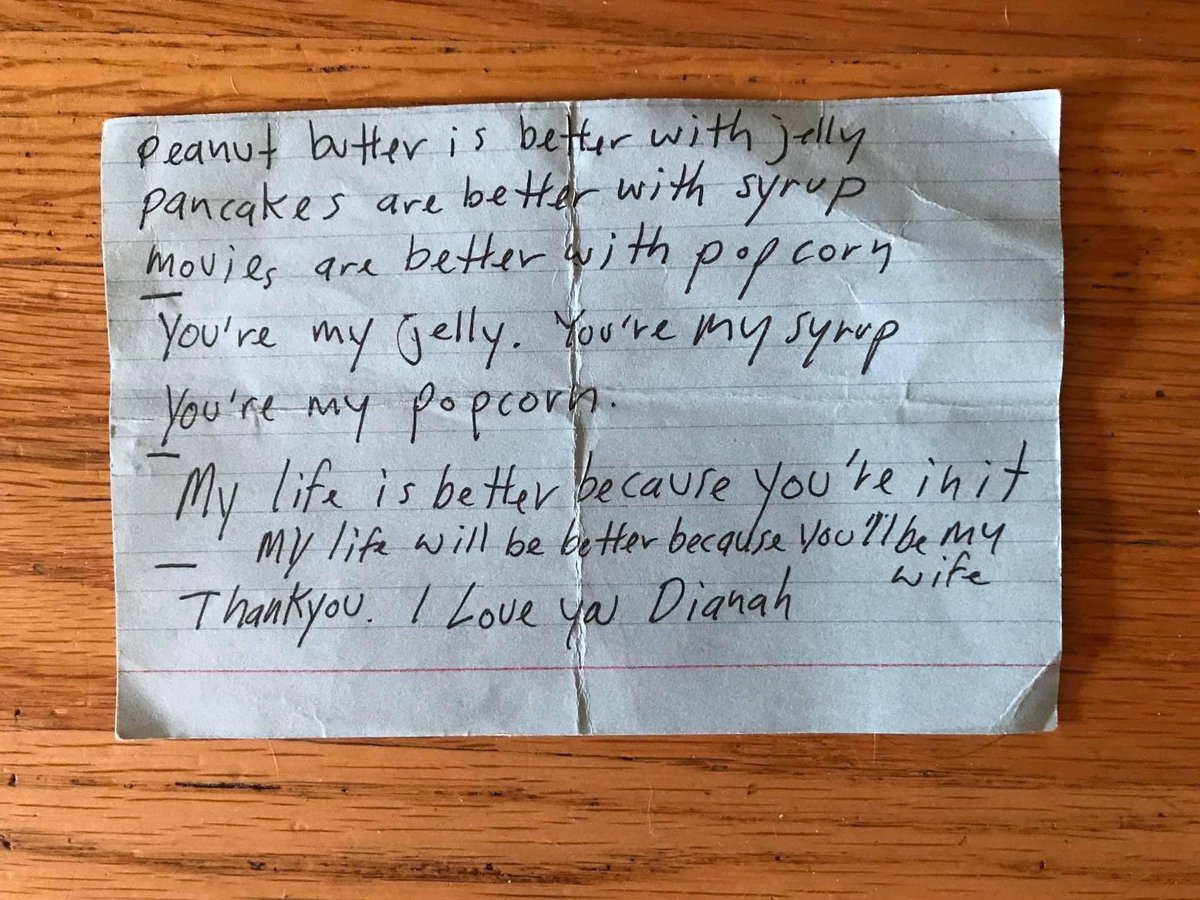 Peanut butter is better with jelly
pancakes are better with syrup
movies are better with popcorn
You're my jelly. You're my syrup
You're my popcorn.
My life is better because you're in it
My life will be better because you'll be my
wife
Thankyou. I Love ya Dianah